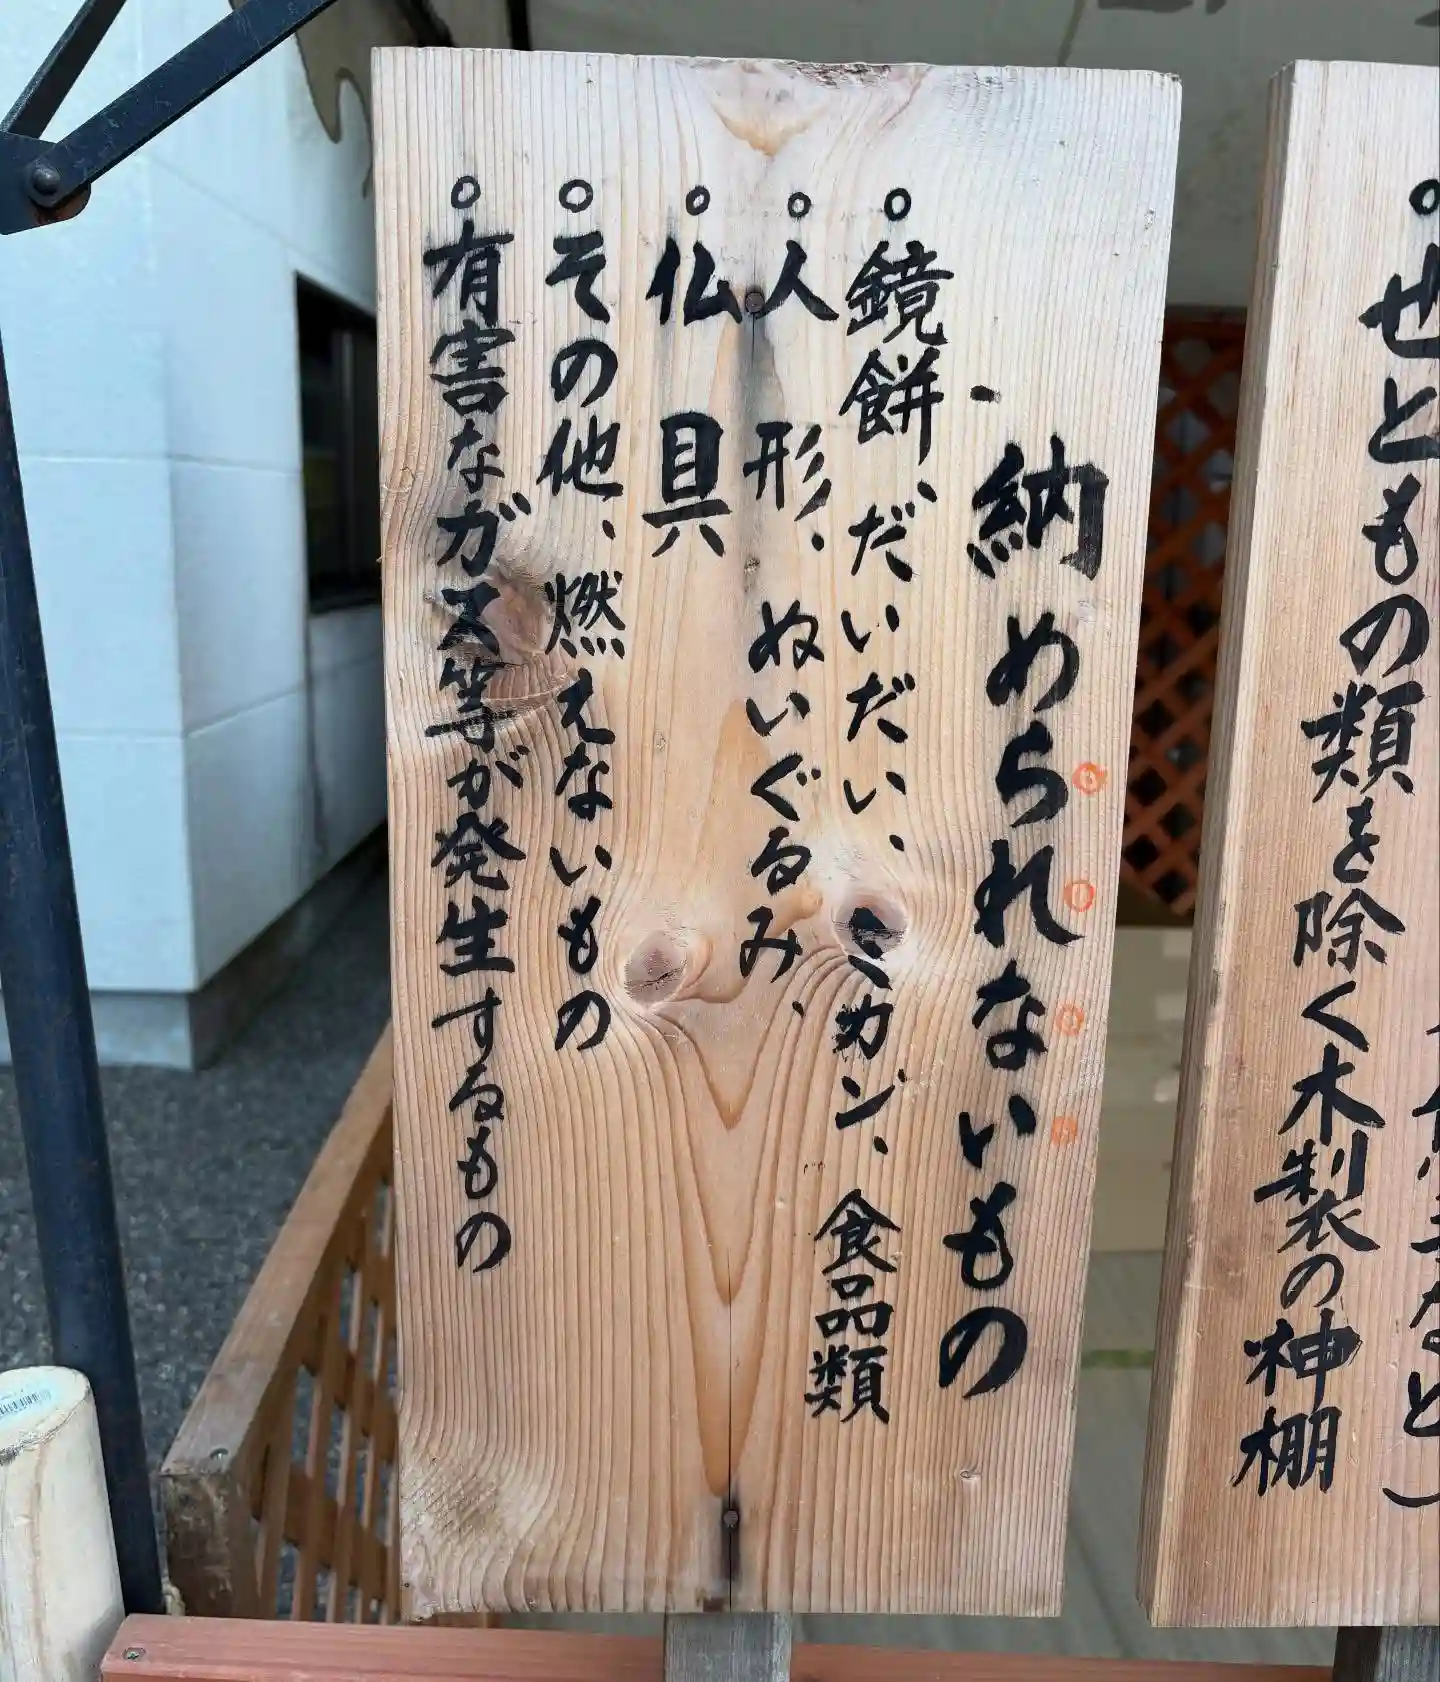 納められないもの
。鏡餅、だいだい、ミカン、食品類
。人形、ぬいぐるみ、
。仏具
。その他、燃えないもの
。有害なガス等が発生するもの
。せともの類を除く木製の神棚